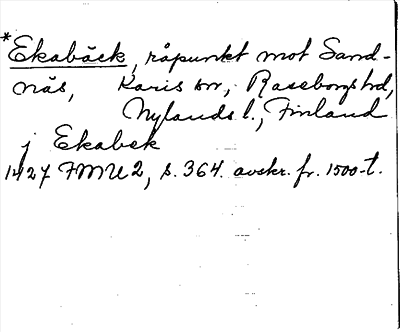 *Ekabäck, råpunkt mot Sand-
näs, Karis sn, Raseborgs hd,
Nylands l., Finland
j Ekabek
1427 FMU 2, s. 364. avskr. fr. 1500-t.